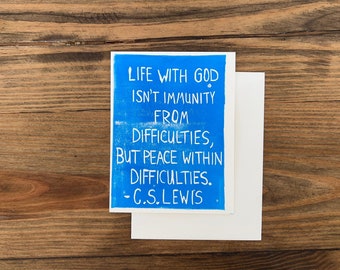 LIFE WITH GOD
ISN'T IMMUNITY
FROM
DIFFICULTIES,
BUT PEACE WITHIN
DIFFICULTIES.
- C.S. LEWIS